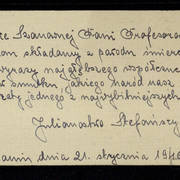 Szanownej Pani Profesoro
składamy z powodu śmierc
wyrazy najgłębszego współczuc
w smutku jakiego naród nasz
jednego z najwybitniejszych
Julianostwo Stefańscy
dnia 21. stycznia 19